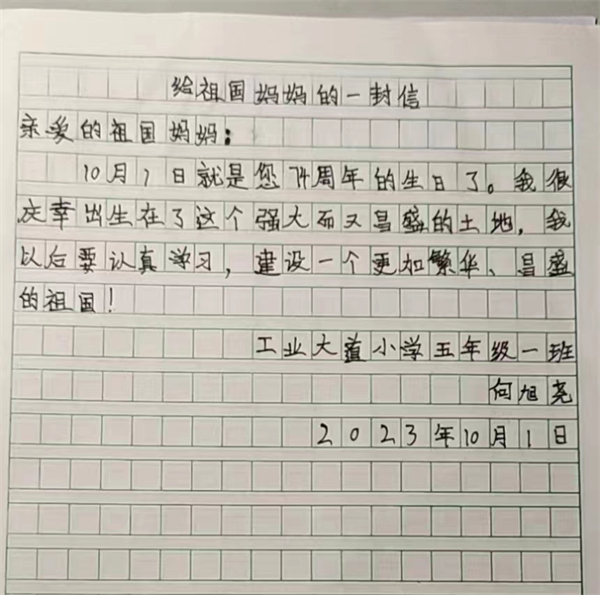 给祖国妈妈的一封信
亲爱的祖国妈妈：
10月1日就是您74周年的生日了。我很
庆幸出生在了这个强大而又昌盛的土地，我
以后要认真学习，建设一个更加繁华、昌盛
的祖国！
工业大道小学五年级一班
何旭尧
2023年10月1日